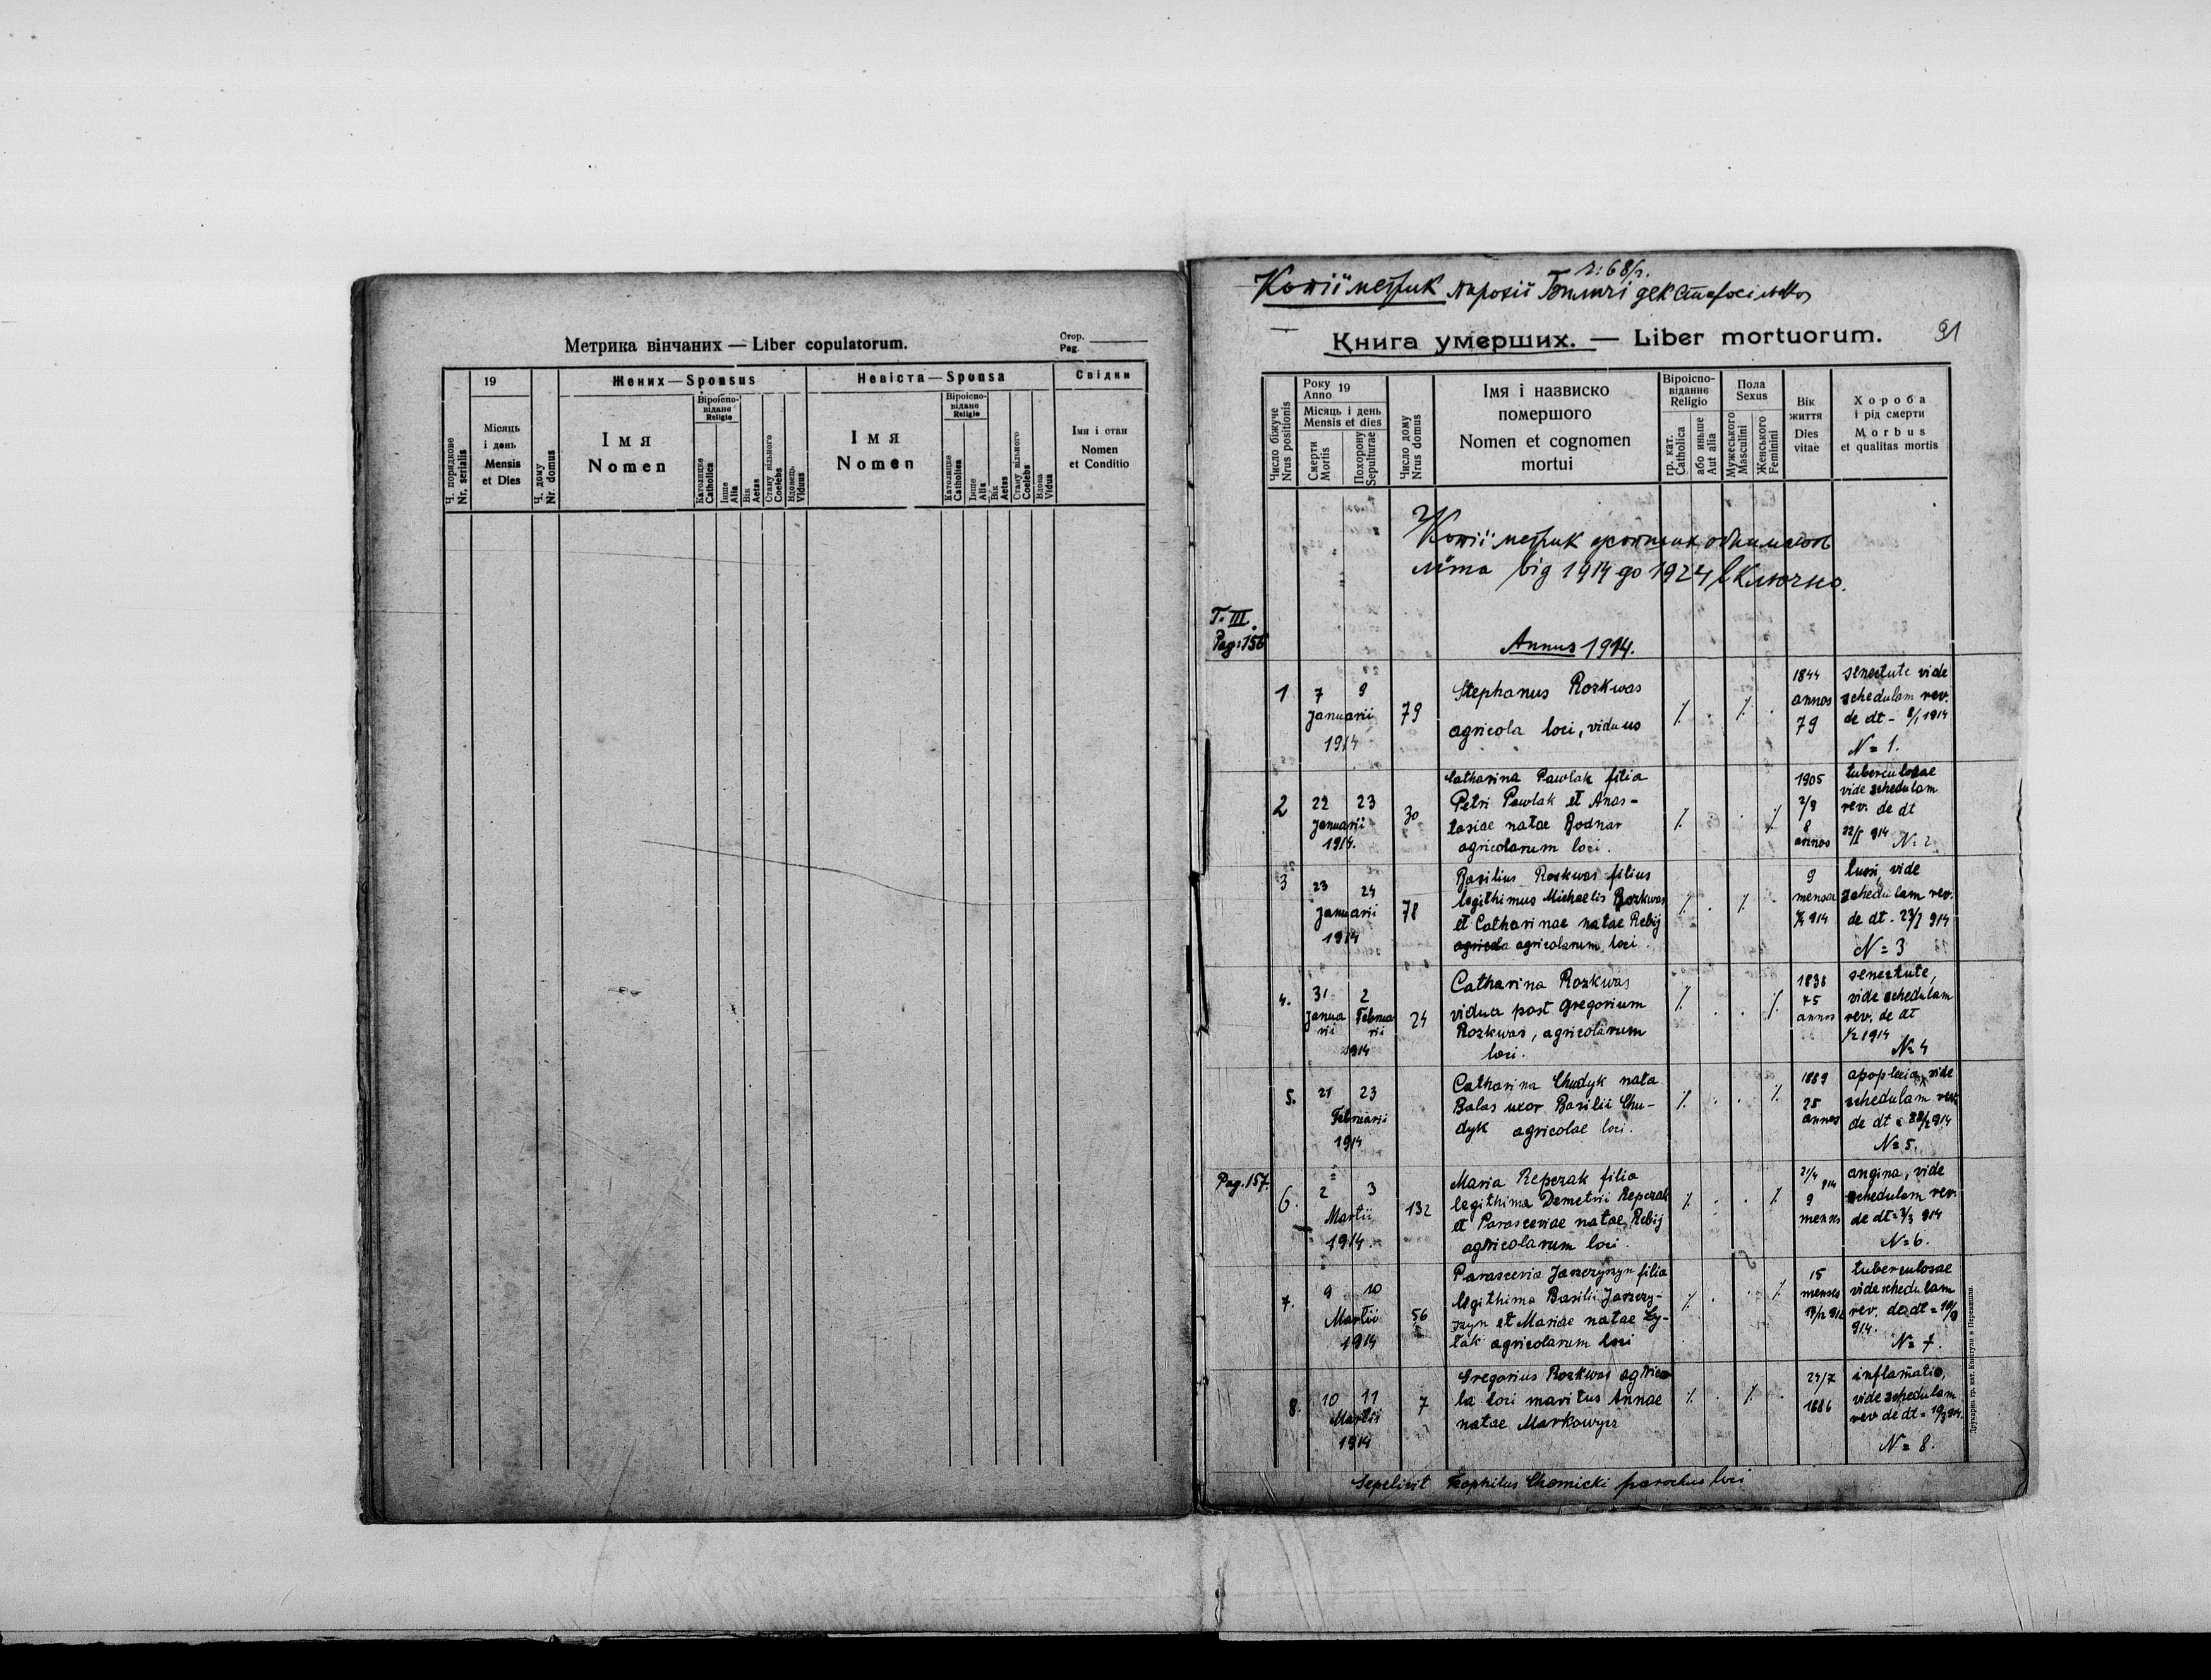 Метрика вінчаних — Liber copulatorum.
Стор.
Pag.
Ч. порядкове
Nr. serialis
19
Місяць
і день
Mensis
et Dies
Ч. дому
Nr. domus
Жених — Sponsus
Імя
Nomen
Віроіспо-
відане
Religio
Католицке
Catholica
Інше
Alia
Вік
Aetas
Стану вільного
Coelebs
Вдовець
Viduus
Невіста — Sponsa
Імя
Nomen
Віроіспо-
відане
Religio
Католицке
Catholica
Інше
Alia
Вік
Aetas
Стану вільного
Coelebs
Вдова
Vidua
Свідки
Імя і стан
Nomen
et Conditio
Копії метрик парохії Биличі дек
Книга умерших. — Liber mortuorum.
91
Число біжуче
Nrus positionis
Року 19
Anno
Місяць і день
Mensis et dies
Смерти
Mortis
Похорону
Sepulturae
Число дому
Nrus domus
Імя і назвиско
помершого
Nomen et cognomen
mortui
Віроіспо-
віданне
Religio
гр. кат.
Catholica
або иньше
Aut alia
Пола
Sexus
Мужеського
Masculini
Женського
Feminini
Вік
життя
Dies
vitae
Хороба
і рід смерти
Morbus
et qualitas mortis
Копії метрик
літа від 1914 до 1924 включно.
T. III.
Pag: 156
Annus 1914.
1
7 9
Januarii
1914
79
Stephanus Rozkwas
agricola loci, viduus
1844
annos
79
senectute vide
schedulam rev.
de dt - 8/1 1914
N = 1.
2
22 23
Januarii
1914.
30
Catharina Pawlak filia
Petri Pawlak et Anas-
tasiae natae Bodnar
agricolarum loci.
1905
2/9
8
annos
tuberculosae
vide schedulam
rev. de dt
22/I 914 N = 2
3
23 24
Januarii
1914
78
Basilius Rozkwas filius
legithimus Michaelis Rozkwas
et Catharinae natae Rebij
agricola agricolarum loci.
9
mensae
914
vide
schedulam rev.
de dt. 23/I 914
N = 3
4.
31 2
Janua Februa
rii rii
1914
24
Catharina Rozkwas
vidua post Gregorium
Rozkwas, agricolarum
loci.
1838
75
annos
senectute,
vide schedulam
rev. de dt
1/2 1914
N = 4
5.
21 23
Februarii
1914
Catharina Chudyk nata
Balas uxor Basilii Chu-
dyk agricolae loci.
1889
25
annos
apoplexia, vide
schedulam rev.
de dt = 22/2 914
N = 5.
Pag. 157.
6.
2 3
Martii
1914.
132
Maria Reperak filia
legithima Demetrii Reperak
et Parasceviae natae Rebij
agricolarum loci.
21/4
914
9
menses
angina, vide
schedulam rev.
de dt = 3/3 914
N = 6.
7.
9 10
Martii
1914
56
Parascevia Jaszczyszyn filia
legithima Basilii Jaszczy-
szyn et Mariae natae Ły-
tak agricolarum loci
15
menses
19/12 912
tuberculosae
vide schedulam
rev. de dt = 10/3
914.
N = 7.
8.
10 11
Martii
1914
7
Gregorius Rozkwas agrico
la loci maritus Annae
natae Markowycz
24/7
1886
inflamatio,
vide schedulam
rev de dt = 10/3 914.
N = 8.
Sepelivit Teophilus Chomicki parochus loci